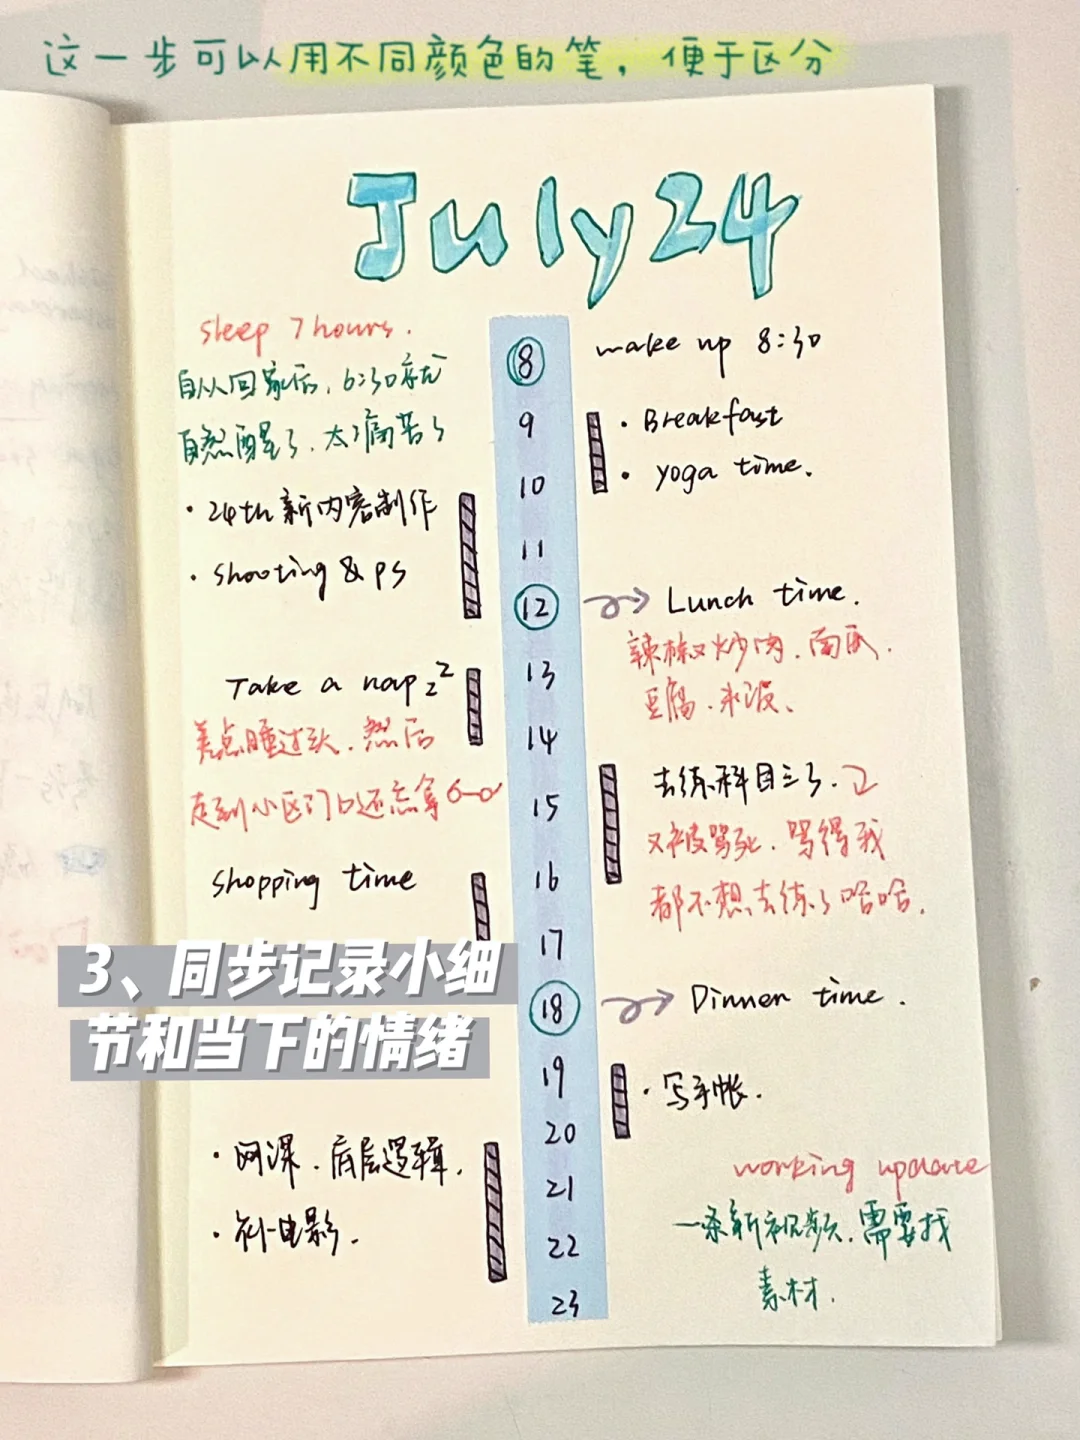 这一步可以用不同颜色的笔，便于区分
July 24
sleep 7 hours.
自从回家后，6:30就
自然醒了，太痛苦了
8
make up 8:30
9
· Breakfast
· yoga time.
10
· 24th 新内容制作
· shooting & ps
11
12
Lunch time.
辣椒炒肉、南瓜、
豆腐、米饭、
13
Take a nap zz
差点睡过头，然后
走到小区门口还忘拿
14
15
去练科目三了，
又被骂死，骂得我
都不想去练了哈哈.
16
shopping time
17
3、同步记录小细
节和当下的情绪
18
Dinner time.
19
· 写手帐.
20
· 网课、底层逻辑，
· 补电影.
21
22
23
working update
一条新视频，需要找
素材.